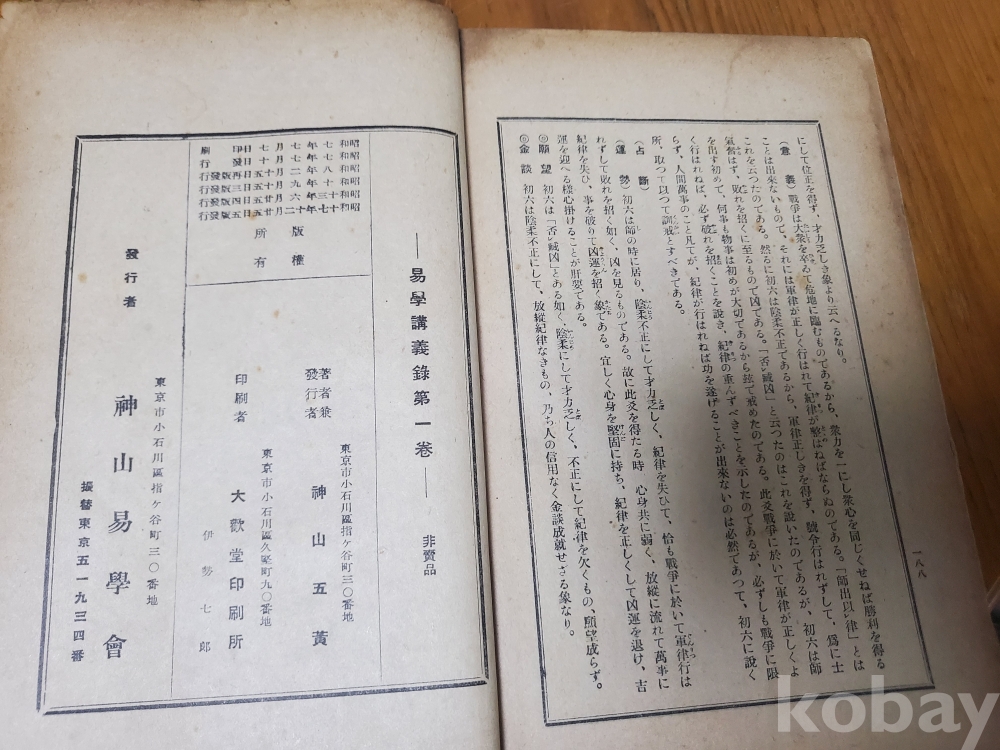 一八八
にして位正を得ず、才力乏しき象より云へるなり。
(意義) 戰爭は大衆を卒ゐて危地に臨むものであるから、衆力を一にし衆心を同じくせねば勝利を得る
ことは出來ないもので、それには軍律が正しく行はれて紀律が整はねばならぬのである。「師出以律」とは
これを云つたのである。然るに初六は陰柔不正であるから、軍律正しきを得ず、號令行はれずして、爲に士
氣奮はず、敗れを招くに至るもので凶である。「否臧凶」と云つたのはこれを說いたのであるが、初六は師
を出す初めで、何事も物事は初めが大切であるから玆で戒めたのである。此爻戰爭に於いて軍律が正しくよ
く行はれねば、必ず破れを招くことを說き、紀律の重んずべきことを示したのであるが、必ずしも戰爭に限
らず、人間萬事のこと凡てが、紀律が行はれねば功を遂げることが出來ないのは必然であつて、初六に說く
所、取つて以つて訓戒とすべきである。
(占斷)
(運勢) 初六は師の時に居り、陰柔不正にして才力乏しく、紀律を失ひて、恰も戰爭に於いて軍律行は
れずして敗れを招く如く、凶を見るものである。故に此爻を得たる時 心身共に弱く、放縱に流れて萬事に
紀律を失ひ、事を破りて凶運を招く象である。宜しく心身を堅固に持ち、紀律を正しくして凶運を退け、吉
運を迎へる樣心掛けることが肝要である。
◎願望 初六は「否臧凶」とある如く、陰柔にして才力乏しく、不正にして紀律を欠くもの、願望成らず。
◎金談 初六は陰柔不正にして、放縱紀律なきもの、乃ち人の信用なく金談成就せざる象なり。
昭和七年七月七日印刷
昭和七年七月十日發行
昭和八年二月十五日再版發行
昭和十年九月十五日三版發行
昭和十三年六月廿五日四版發行
昭和十七年十二月廿五日五版發行
版權所有
—易學講義錄第一卷—
非賣品
東京市小石川區指ヶ谷町三〇番地
著者兼發行者 神山五黃
東京市小石川區久堅町九〇番地
印刷者 大歡堂印刷所
伊勢七郎
東京市小石川區指ヶ谷町三〇番地
發行者 神山易學會
振替東京五一九三四番
kobay